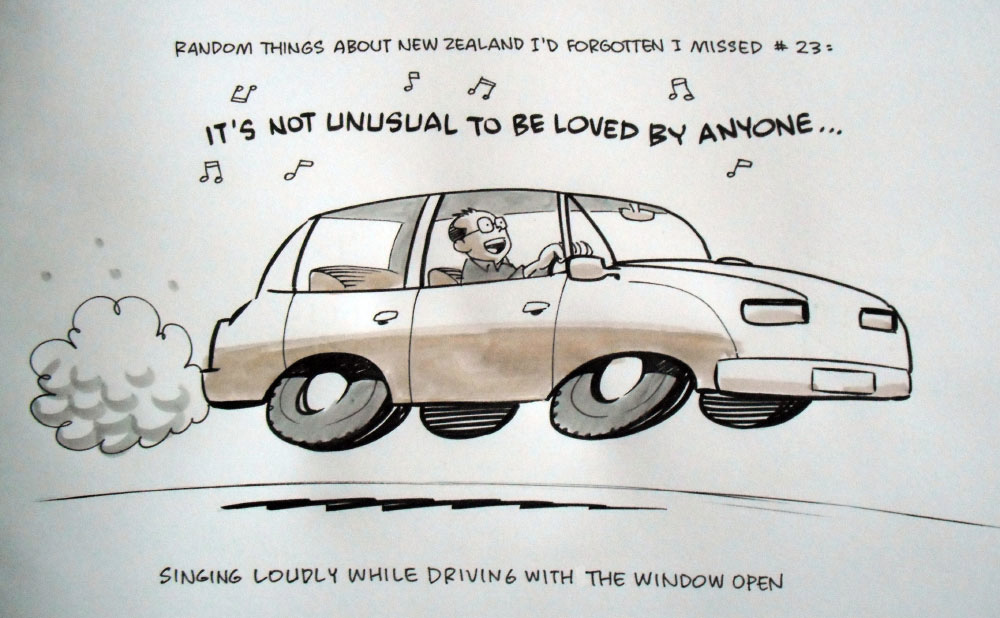 RANDOM THINGS ABOUT NEW ZEALAND I'D FORGOTTEN I MISSED # 23:
IT'S NOT UNUSUAL TO BE LOVED BY ANYONE...
SINGING LOUDLY WHILE DRIVING WITH THE WINDOW OPEN